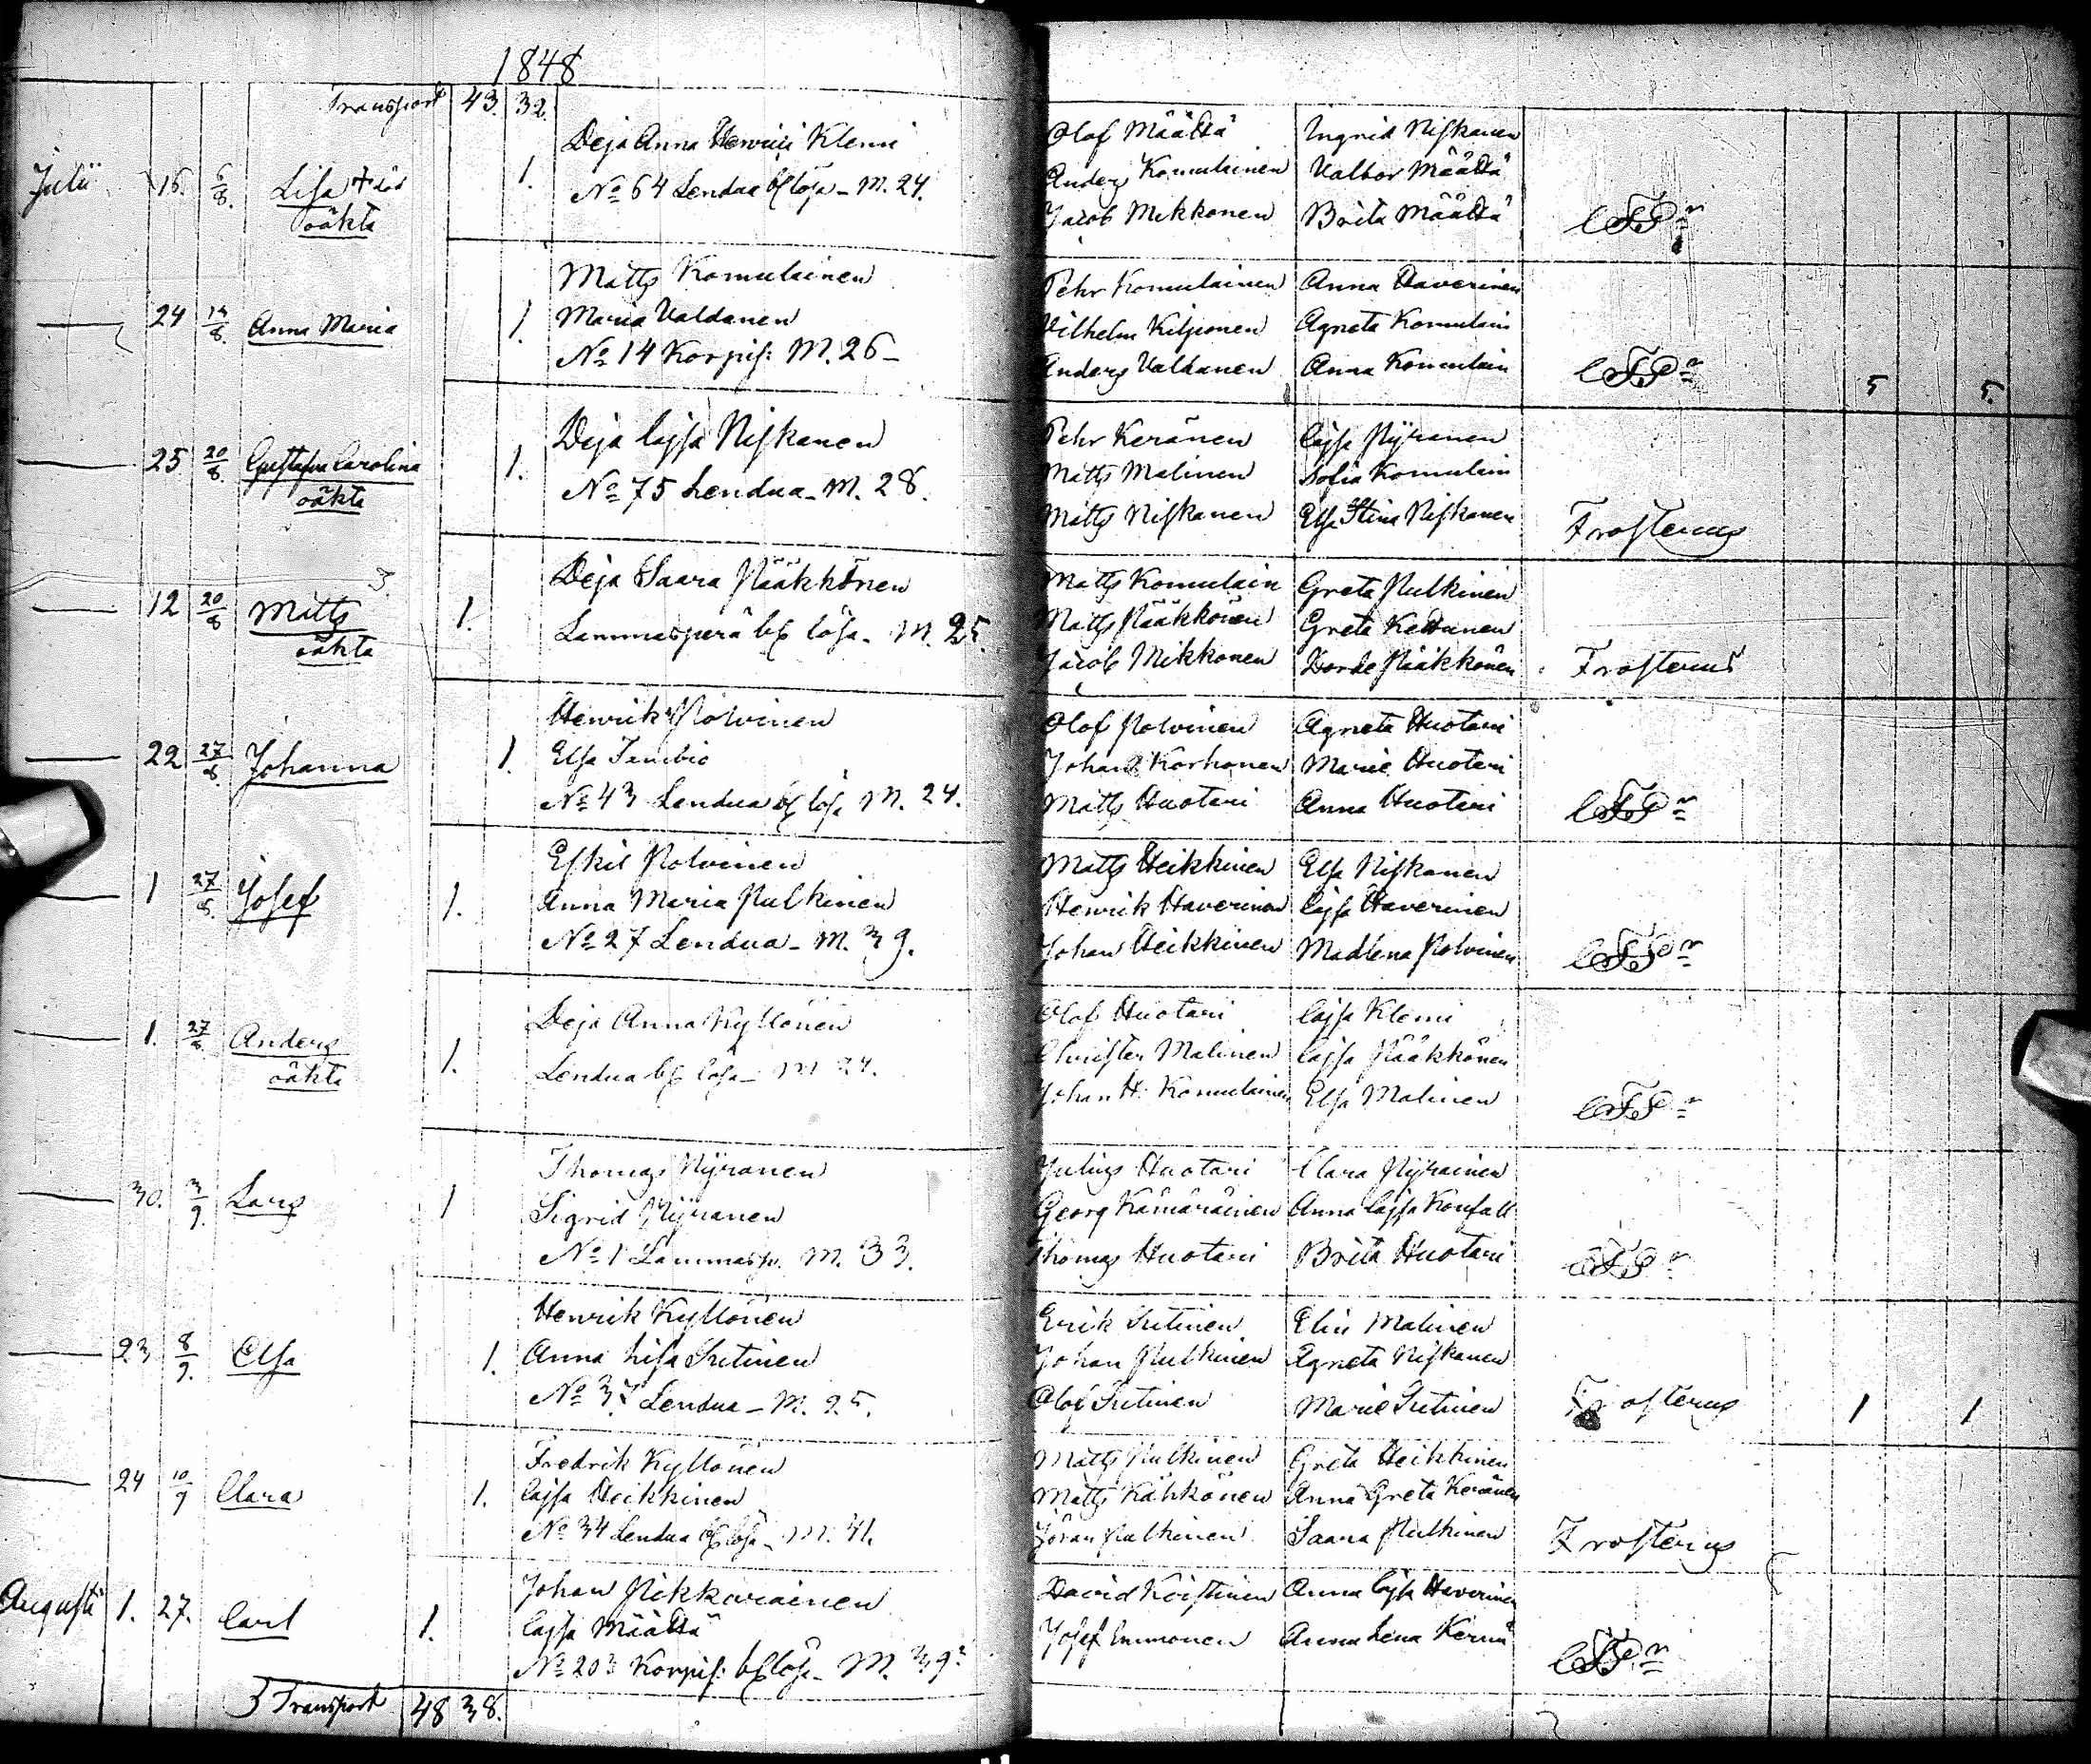 1848
Transport 43. 32.
Julii 16. 6/8. Lisa + död 1. Deja Anna Henrici Klemi Olof Määttä Ingrid Niskanen
oäkta No 64 Lendua bf lösa - M. 24. Anders Komulainen Valbor Määttä
Jacob Mikkonen Brita Määttä
Matts Komulainen Pehr Komulainen Anna Haverinen
24 14/8. Anna Maria 1. Maria Valdanen Vilhelm Kilponen Agneta Komulain
No 14 Korpis: M. 26 - Anders Valdanen Anna Komulain 5 5.
Deja Cajsa Niskanen Pehr Keränen Cajsa Pyÿranen
25 20/8. Gustafva Carolina 1. No 75 Lendua - M. 28. Matts Malinen Sofia Komulain
oäkta Matts Niskanen Elsa Stina Niskanen Frosterus
Deja Saara Pääkkönen Matts Komulain Greta Pulkinen
12 20/8 Matts 1. Lammasperä bf lösa - M. 25. Matts Pääkkönen Greta Kettunen
oäkta Jacob Mikkonen Dorde Pääkkönen Frosterus
Henrik Polvinen Olof Polvinen Agneta Huotari
22 27/8. Johanna 1. Elsa Tembio Johan Korhonen Maria Huotari
No 43 Lendua bf lösa M. 24. Matts Huotari Anna Huotari
Eskil Polvinen Matts Heikkinen Elsa Niskanen
1 27/8. Josef 1. Anna Maria Pulkinen Henrik Haverinen Cajsa Haverinen
No 27 Lendua - M. 39. Johan Heikkinen Madlena Polvinen
Deja Anna Kyllönen Olof Huotari Cajsa Klemi
1. 27/8. Anders 1. Lendua bf lösa - M 24. Christer Malinen Cajsa Pääkkönen
oäkta Johan H. Komulainen Elsa Malinen
Thomas Pyÿranen Julius Huotari Clara Pyÿrainen
30. 3/9. Lars 1 Sigrid Pyÿranen Georg Kämäräinen Anna Cajsa Konfall
No 1 Lammasp. M. 33. Thomas Huotari Brita Huotari
Henrik Kyllönen Erik Sutinen Elin Malinen
23 8/9. Elsa 1. Anna Lisa Sutinen Johan Pulkinen Agneta Niskanen
No 37 Lendua - M. 25. Olof Sutinen Maria Sutinen Frosterus 1 1
Fredrik Kyllönen Matts Pulkinen Greta Heikkinen
24 10/9 Clara 1. Cajsa Heikkinen Matts Kähkönen Anna Greta Keränen
No 34 Lendua bf lösa - M. 41. Jöran Pulkinen Saara Pulkinen Frosterus
Johan Pikkarainen David Koistinen Anna Cajsa Haverinen
Augusti 1. 27. Carl 1. Cajsa Määttä Josef Immonen Anna Lena Kernä
No 20 Korpis: bf lösa - M. 39
Transport 48 38.